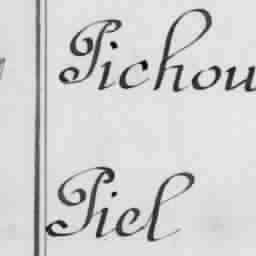 Pichou
Piel